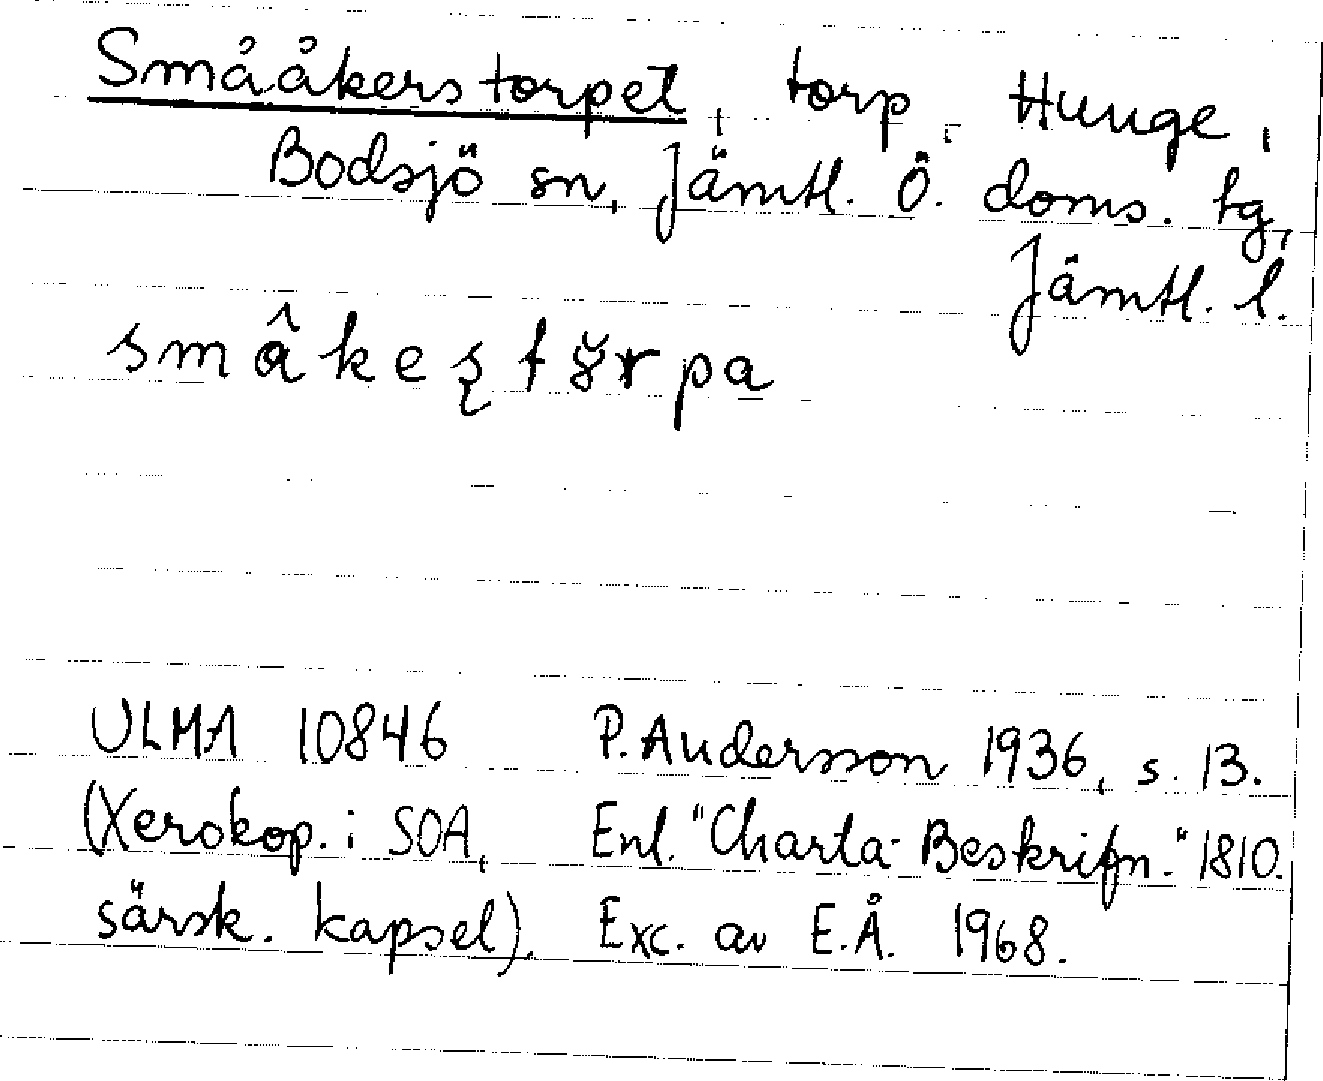 Småakerstorpet, torp, Hunge,
Bodsjö sn, Jämtl. Ö. doms. tg,
Jämtl. l.
ULMA 10846 P. Andersson 1936, s. 13.
(Xerokop. i SOA, Enl. "Charta-Beskrifn." 1810.
särsk. kapsel). Exc. av E.Å. 1968.